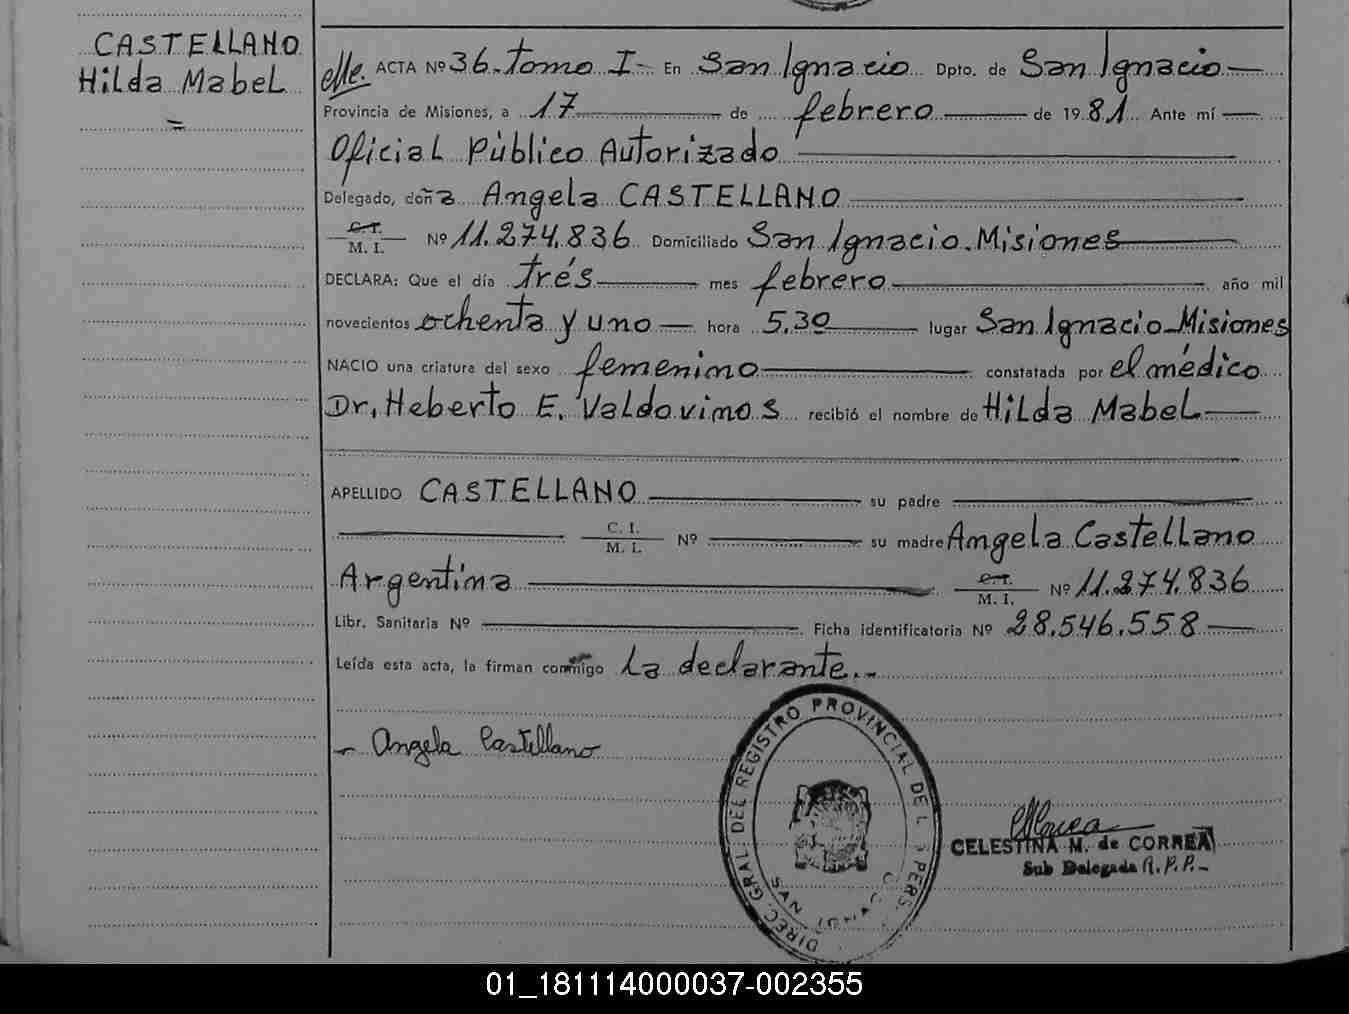 CASTELLANO
Hilda Mabel
=
ACTA Nº 36. tomo I - En San Ignacio Dpto. de San Ignacio
Provincia de Misiones, a 17 de febrero de 1981 Ante mí
Oficial Público Autorizado
Delegado, doña Angela CASTELLANO
C.I. / M. I. Nº 11.274.836 Domiciliado San Ignacio. Misiones
DECLARA: Que el día trés mes febrero año mil
novecientos ochenta y uno hora 5.30 lugar San Ignacio-Misiones
NACIO una criatura del sexo femenino constatada por el médico
Dr. Heberto E. Valdovinos recibió el nombre de Hilda Mabel
APELLIDO CASTELLANO su padre
C. I. / M. I. Nº su madre Angela Castellano
Argentina C.I. / M. I. Nº 11.274.836
Libr. Sanitaria Nº Ficha identificatoria Nº 28.546.558
Leída esta acta, la firman conmigo la declarante.-
- Angela Castellano
DIREC. GRAL. DEL REGISTRO PROVINCIAL DE L PERS.
SAN IGNACIO
CELESTINA M. de CORREA
Sub Delegada R.P.P.-
01_181114000037-002355